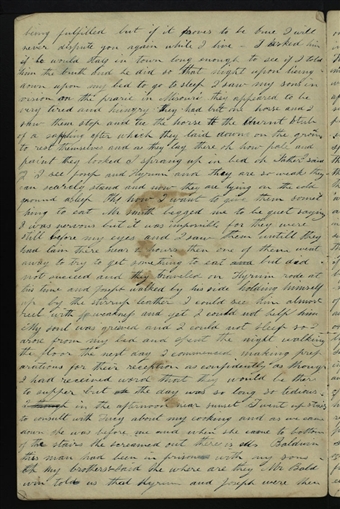 being fulfilled but if it proves to be true I will
never dispute you again while I live – I asked him
if he would stay in town long enough to see if I told
him the truth and he did so that night upon lieing
down upon my bed to go to sleep I saw my sons in
vision on the prairie in Missouri they appeared to be
very tired and hungry they had but one horse and I
saw them stop and tie the horse to the burnt stub
of a sapling after which they laid down on the ground
to rest themselves and as they lay there oh how pale and
faint they looked I sprang up in bed oh Father said
I I see Joseph and Hyrum and they are so weak they
can scarcely stand and now they are lying on the cold
ground asleep Oh how I want to give them some
thing to eat Mr Smith begged me to be quiet saying
I was nervous but it was impossible for they were
still before my eyes and I saw them untill they
had lain there hours 2 hours then one of them went
away to try to get something to eat and but did
not succeed and they traveled on Hyrum rode at
this time and Joseph walked by his side holding himself
up by the stirrup leather I could see him almost
reel with fatigue and yet I could not help him
My soul was greived and I could not sleep so I
arose from my bed and spent the night walking
the floor the next day I commenced making prep
arations for their reception as confidently as though
I had received word that they would be there
to supper but the day was so long so tedious
in the afternoon near sunset I went up
to consult with Lucy about my cooking and as we came
down she was before me and when she came to bottom
of the stairs she screamed out there is Mr Baldwin
this man had been in prison with my sons
oh my brothers said she where are they Mr Bald
win told us that Hyrum and Joseph were then